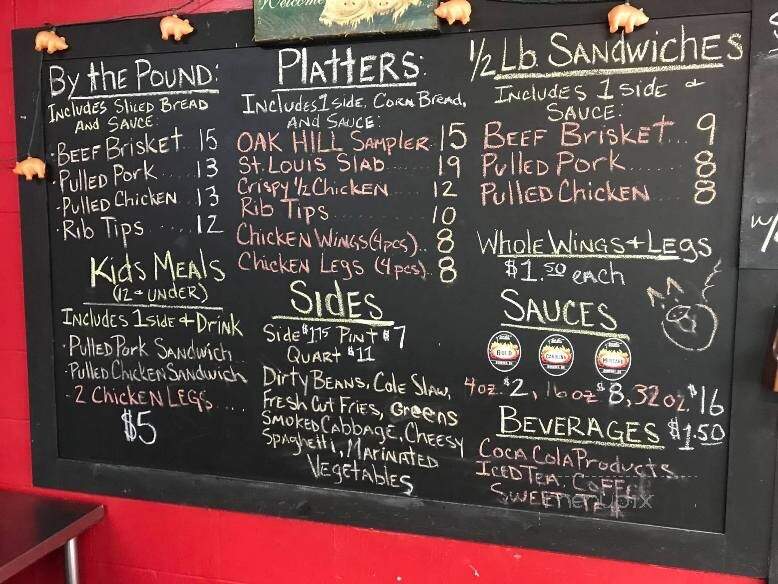 Welcome
By the Pound:
Includes Sliced Bread
And Sauce:
·Beef Brisket. 15
·Pulled Pork 13
·Pulled Chicken 13
·Rib Tips ..... 12
Kids Meals
(12 + under)
Includes 1 side + Drink
·Pulled Pork Sandwich
·Pulled Chicken Sandwich
·2 Chicken Legs....
$5
Platters:
Includes 1 side, Corn Bread,
And Sauce:
Oak Hill Sampler 15
St. Louis Slab ..... 19
Crispy 1/2 Chicken 12
Rib Tips ........ 10
Chicken Wings (4pcs).. 8
Chicken Legs (4pcs). 8
Sides
Side $1.75 Pint $7
Quart $11
Dirty Beans, Cole Slaw,
Fresh Cut Fries, Greens
Smoked Cabbage, Cheesy
Spaghetti, Marinated
Vegetables
1/2 Lb. Sandwiches
Includes 1 side +
Sauce:
Beef Brisket... 9
Pulled Pork ..... 8
Pulled Chicken 8
Whole Wings + Legs
$1.50 each
Sauces
4oz. $2, 16oz $8, 32oz. $16
Beverages $1.50
Coca Cola Products
Iced Tea, Coffee
Sweet Tea
w/